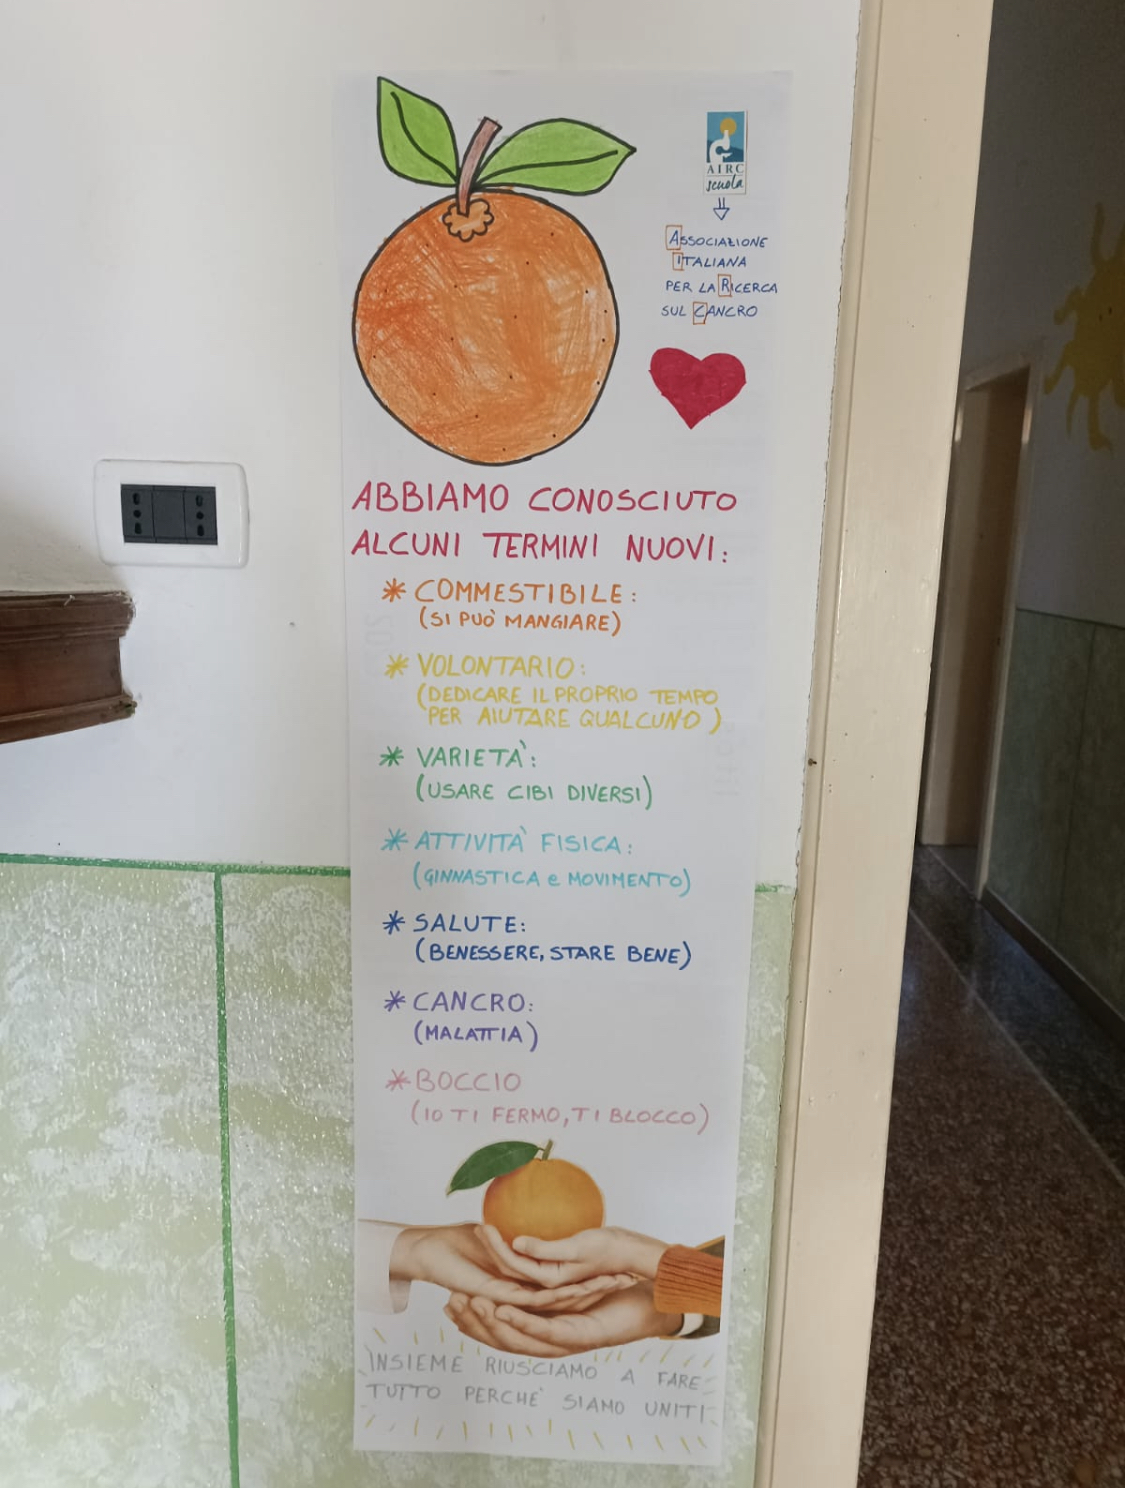 AIRC
scuola
ASSOCIAZIONE
ITALIANA
PER LA RICERCA
SUL CANCRO
ABBIAMO CONOSCIUTO
ALCUNI TERMINI NUOVI:
* COMMESTIBILE:
(SI PUÒ MANGIARE)
* VOLONTARIO:
(DEDICARE IL PROPRIO TEMPO
PER AIUTARE QUALCUNO)
* VARIETÀ:
(USARE CIBI DIVERSI)
* ATTIVITÀ FISICA:
(GINNASTICA e MOVIMENTO)
* SALUTE:
(BENESSERE, STARE BENE)
* CANCRO:
(MALATTIA)
* BOCCIO
(IO TI FERMO, TI BLOCCO)
INSIEME RIUSCIAMO A FARE
TUTTO PERCHE' SIAMO UNITI